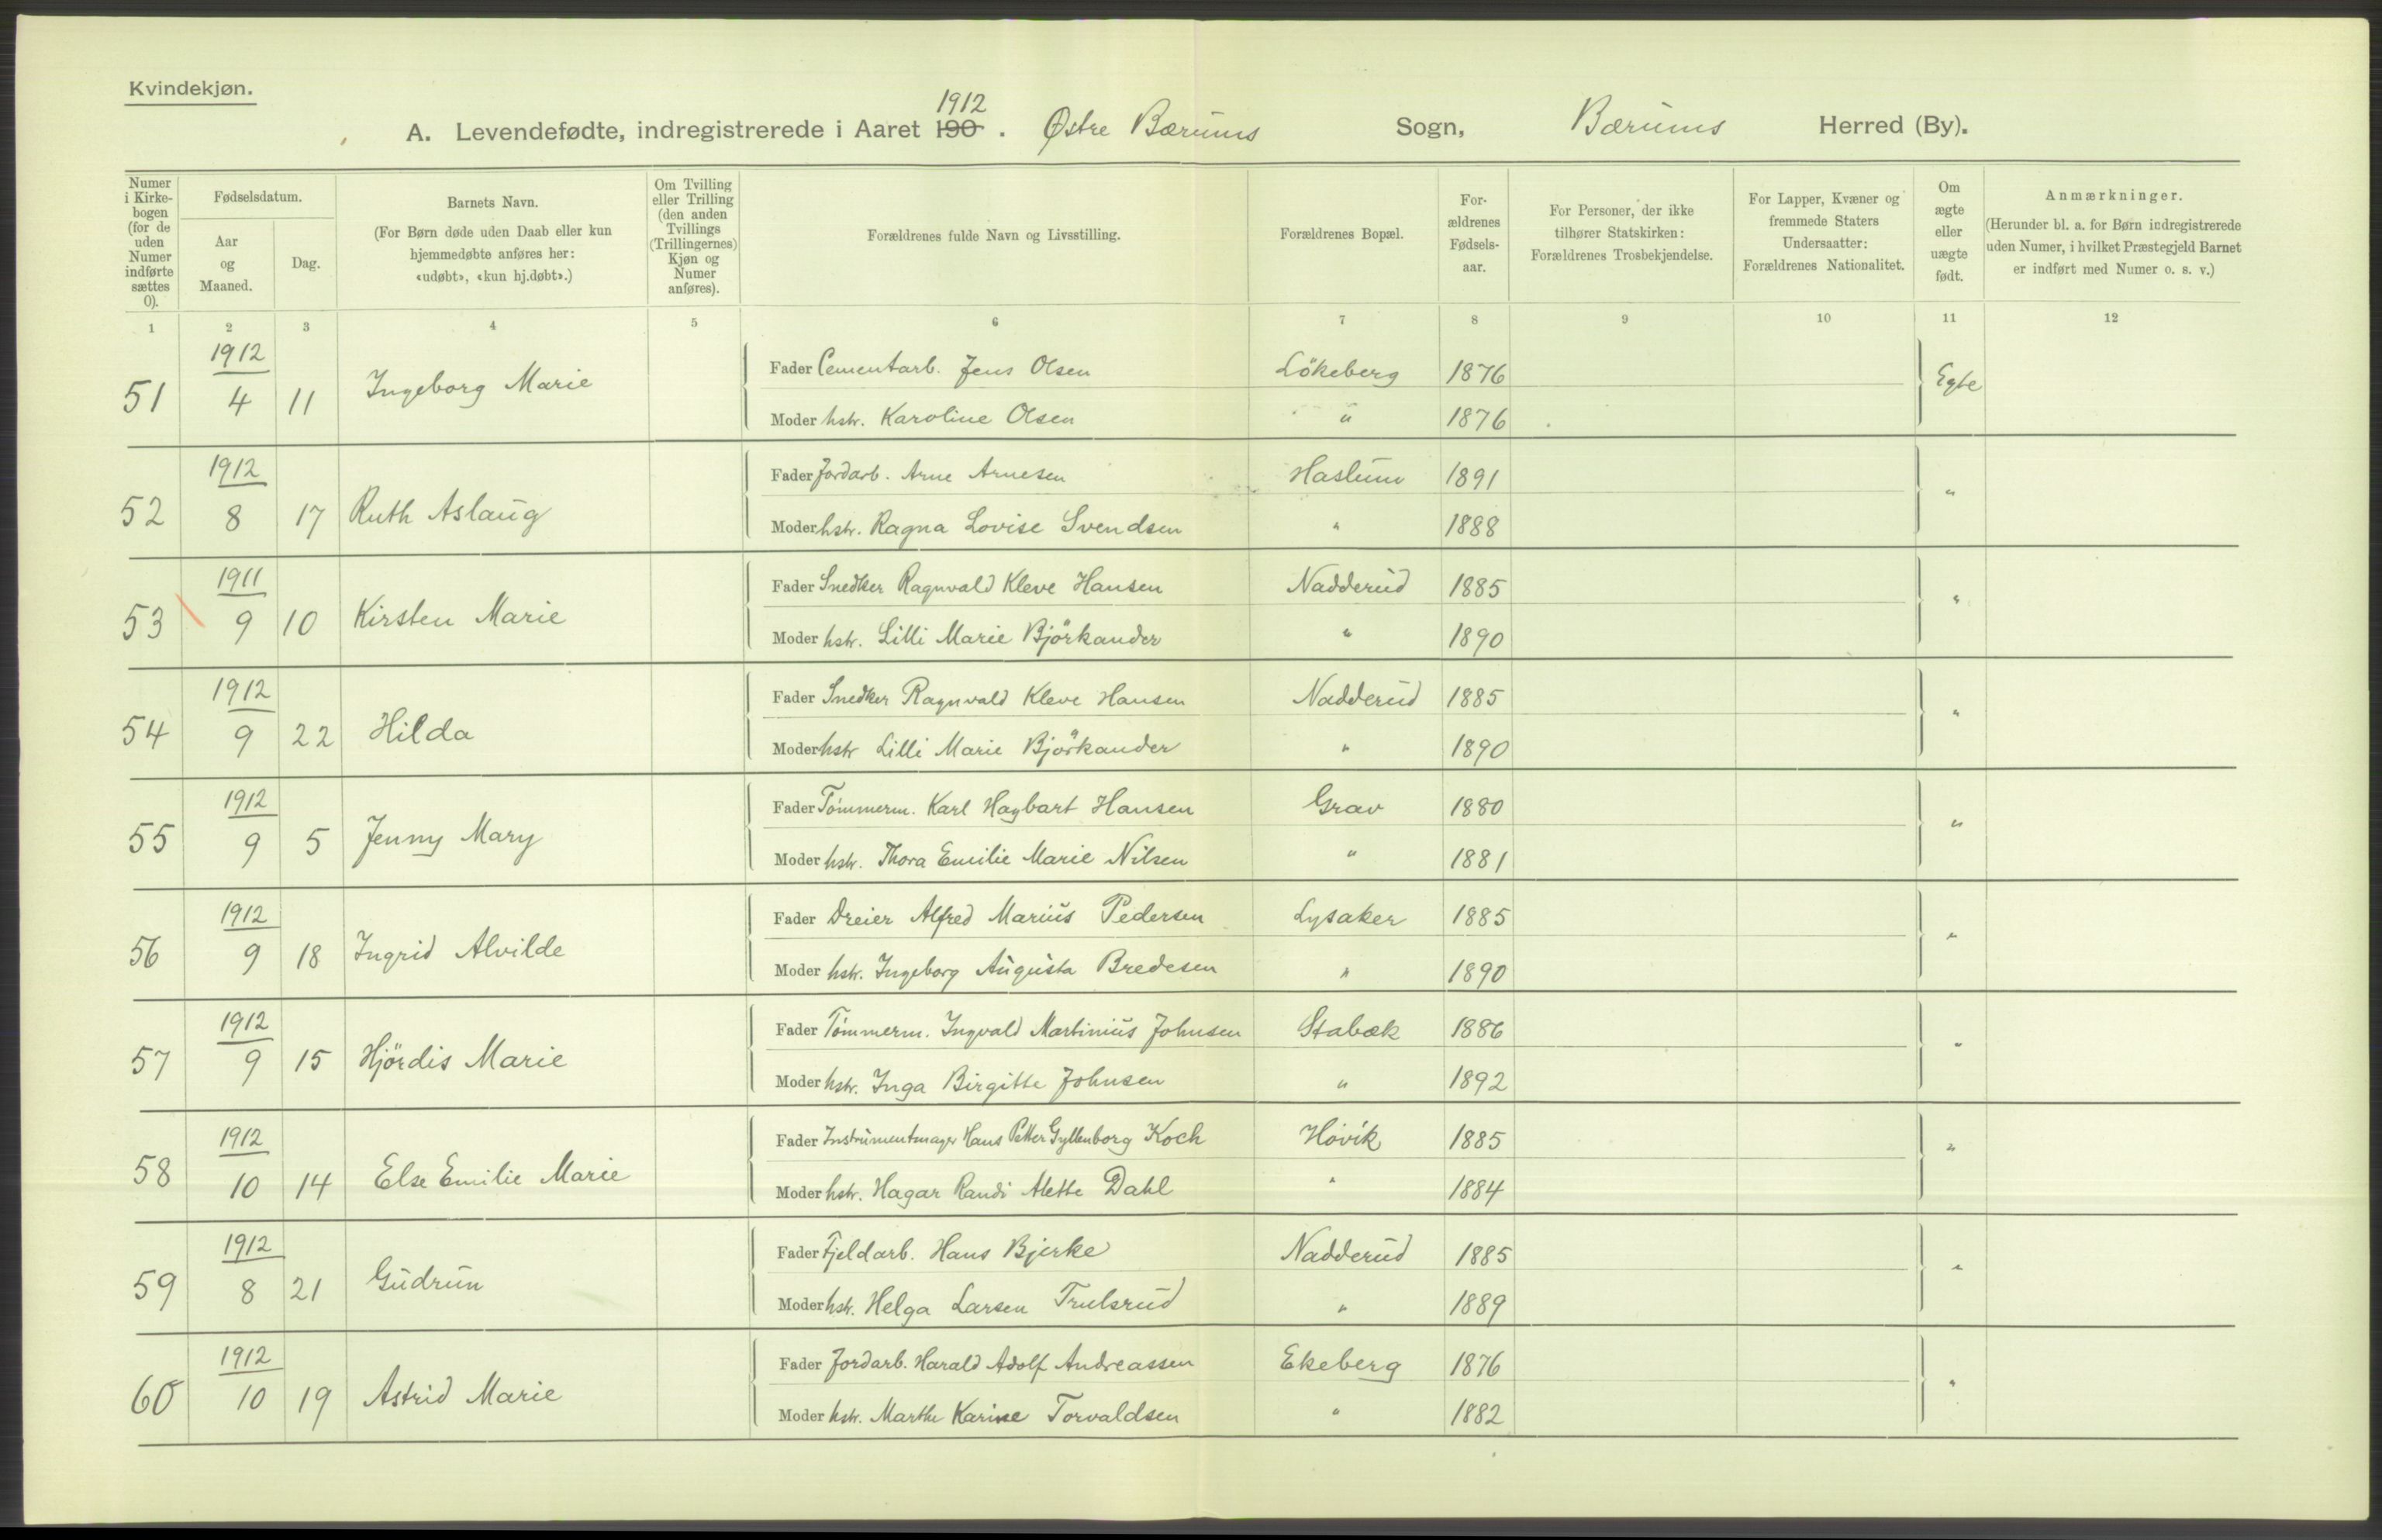 Kvindekjøn.
1912
A. Levendefødte, indregistrerede i Aaret 190 . Østre Bærums Sogn, Bærums Herred (By).
Numer i Kirkebogen (for de uden Numer indførte sættes 0).
Fødselsdatum.
Aar og Maaned.
Dag.
Barnets Navn.
(For Børn døde uden Daab eller kun hjemmedøbte anføres her: «udøbt», «kun hj.døbt».)
Om Tvilling eller Trilling (den anden Tvillings (Trillingernes) Kjøn og Numer anføres).
Forældrenes fulde Navn og Livsstilling.
Forældrenes Bopæl.
Forældrenes Fødselsaar.
For Personer, der ikke tilhører Statskirken: Forældrenes Trosbekjendelse.
For Lapper, Kvæner og fremmede Staters Undersaatter: Forældrenes Nationalitet.
Om ægte eller uægte født.
Anmærkninger.
(Herunder bl. a. for Børn indregistrerede uden Numer, i hvilket Præstegjeld Barnet er indført med Numer o. s. v.)
1 2 3 4 5 6 7 8 9 10 11 12
1912
Fader Cementarb. Jens Olsen Lökeberg 1876
51 4 11 Ingeborg Marie Egte
Moder hstr. Karoline Olsen " 1876
1912
Fader Jordarb. Arne Arnesen Haslum 1891
52 8 17 Ruth Aslaug "
Moder hstr. Ragna Lovise Svendsen " 1888
1911
Fader Snedker Ragnvald Kleve Hansen Nadderud 1885
53 9 10 Kirsten Marie "
Moder hstr. Lilli Marie Björkander " 1890
1912
Fader Snedker Ragnvald Kleve Hansen Nadderud 1885
54 9 22 Hilda "
Moder hstr Lilli Marie Björkander " 1890
1912
Fader Tömmerm. Karl Hagbart Hansen Grav 1880
55 9 5 Jenny Mary "
Moder hstr. Thora Emilie Marie Nilsen " 1881
1912
Fader Dreier Alfred Marius Pedersen Lysaker 1885
56 9 18 Ingrid Alvilde "
Moder hstr. Ingeborg Augusta Bredesen " 1890
1912
Fader Tömmerm. Ingvald Martinius Johnsen Stabæk 1886
57 9 15 Hjördis Marie "
Moder hstr. Inga Birgitte Johnsen " 1892
1912
Fader Instrumentmager Hans Petter Gyllenborg Koch Hövik 1885
58 10 14 Else Emilie Marie "
Moder hstr. Hagar Randi Alette Dahl " 1884
1912
Fader Fjeldarb. Hans Bjerke Nadderud 1885
59 8 21 Gudrun "
Moder hstr. Helga Larsen Trulsrud " 1889
1912
Fader Jordarb. Harald Adolf Andreassen Ekeberg 1876
60 10 19 Astrid Marie "
Moder hstr. Marthe Karine Torvaldsen " 1882